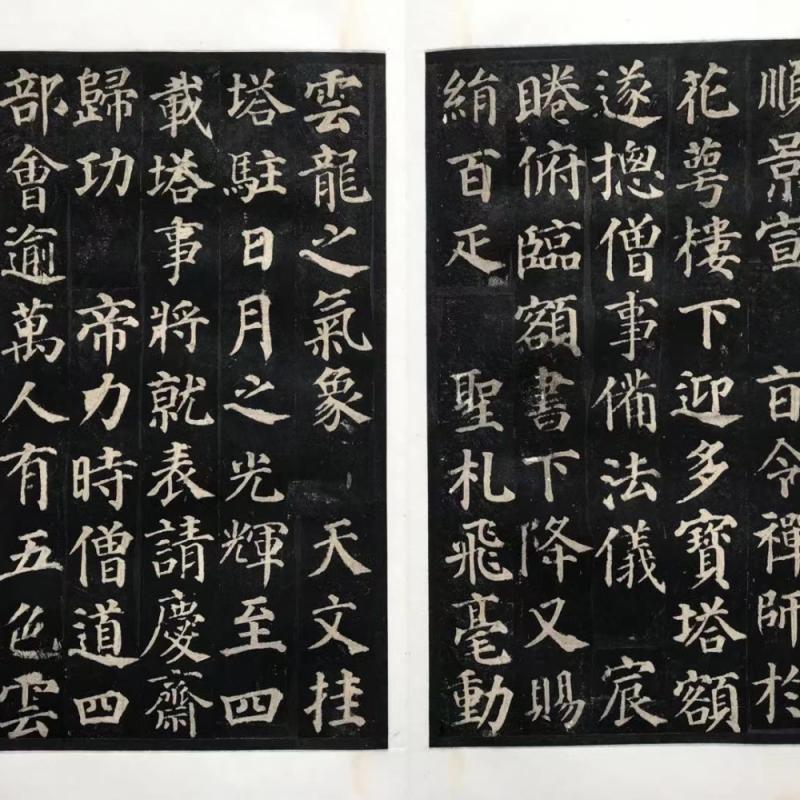 順景宣 旨令禪師於
花萼樓下迎多寶塔額
遂摠僧事俻法儀 宸
睠俯臨額書下降又賜
絹百疋 聖札飛毫動
雲龍之氣象 天文挂
塔駐日月之光輝至四
載塔事將就表請慶齋
歸功 帝力時僧道四
部會逾萬人有五色雲